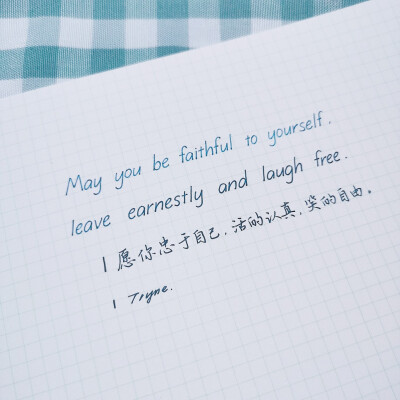 May you be faithful to yourself.
leave earnestly and laugh free.
| 愿你忠于自己.活的认真.笑的自由。
| Tryne.